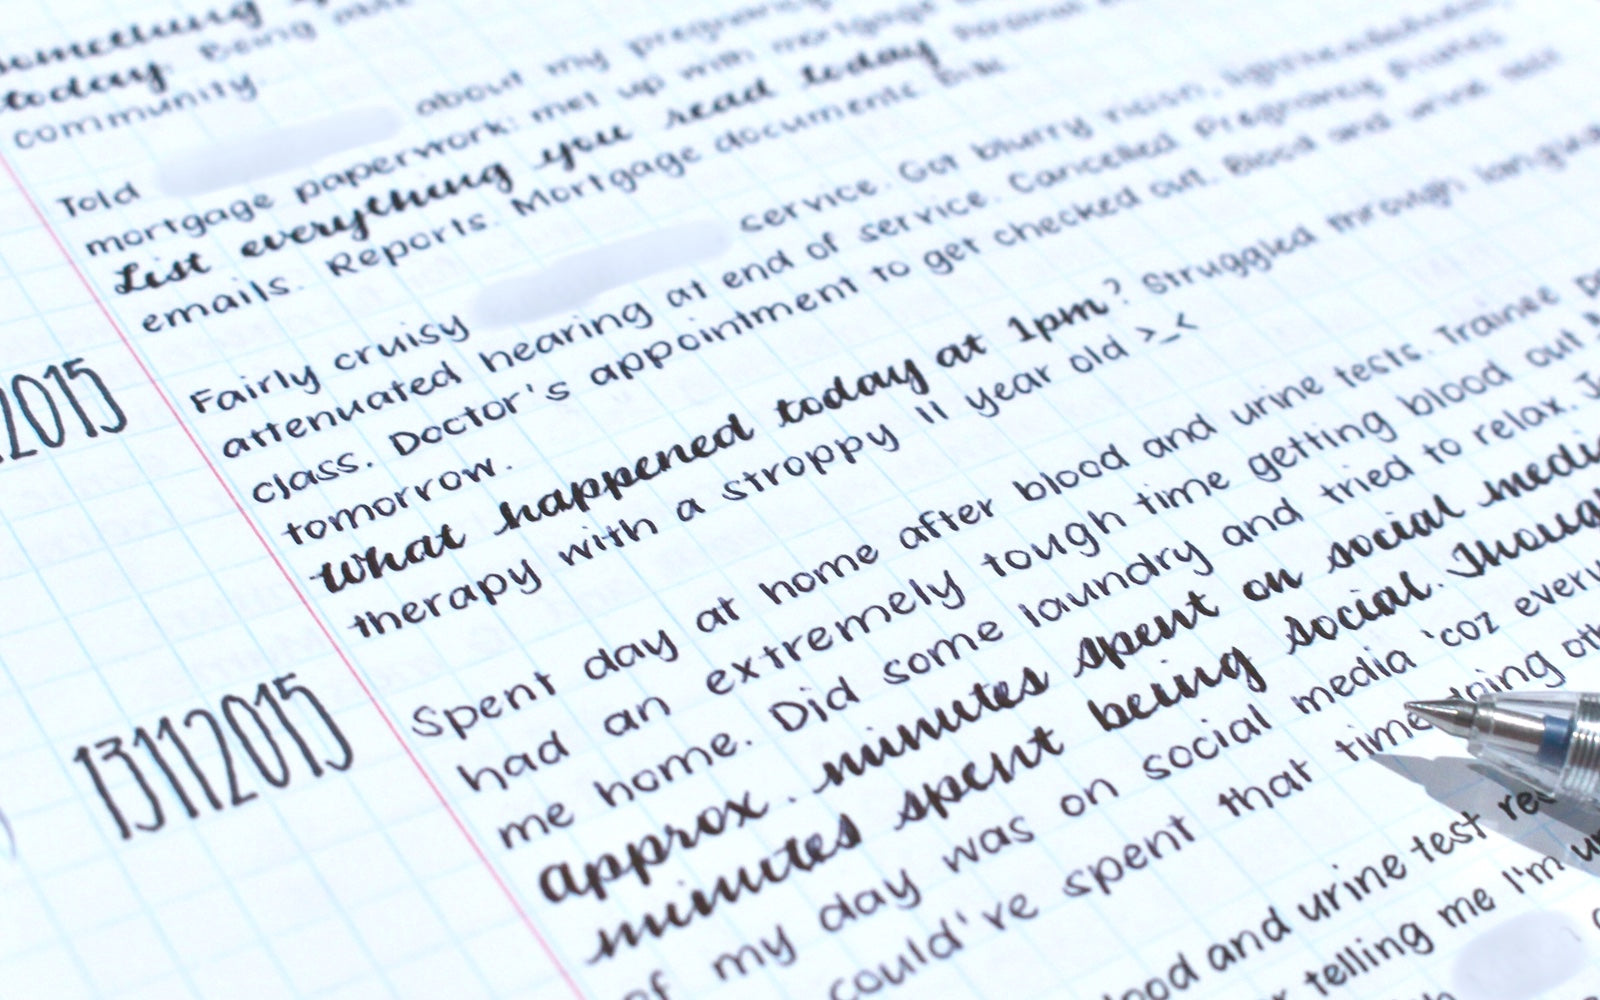 something
today. Being
community
Told about my pregnancy
mortgage paperwork; met up with mortgage
List everything you read today. Personal
emails. Reports. Mortgage documents.
2015
Fairly cruisy service. Got blurry vision, lightheadedness,
attenuated hearing at end of service. Cancelled Pregnancy Pilates
class. Doctor's appointment to get checked out. Blood and urine test
tomorrow.
What happened today at 1pm? Struggled through language
therapy with a stroppy 11 year old >_<
13112015
Spent day at home after blood and urine tests. Trainee
had an extremely tough time getting blood out
me home. Did some laundry and tried to relax.
Approx. minutes spent on social media
minutes spent being social. Though
of my day was on social media 'coz every
could've spent that time doing
blood and urine test
telling me I'm